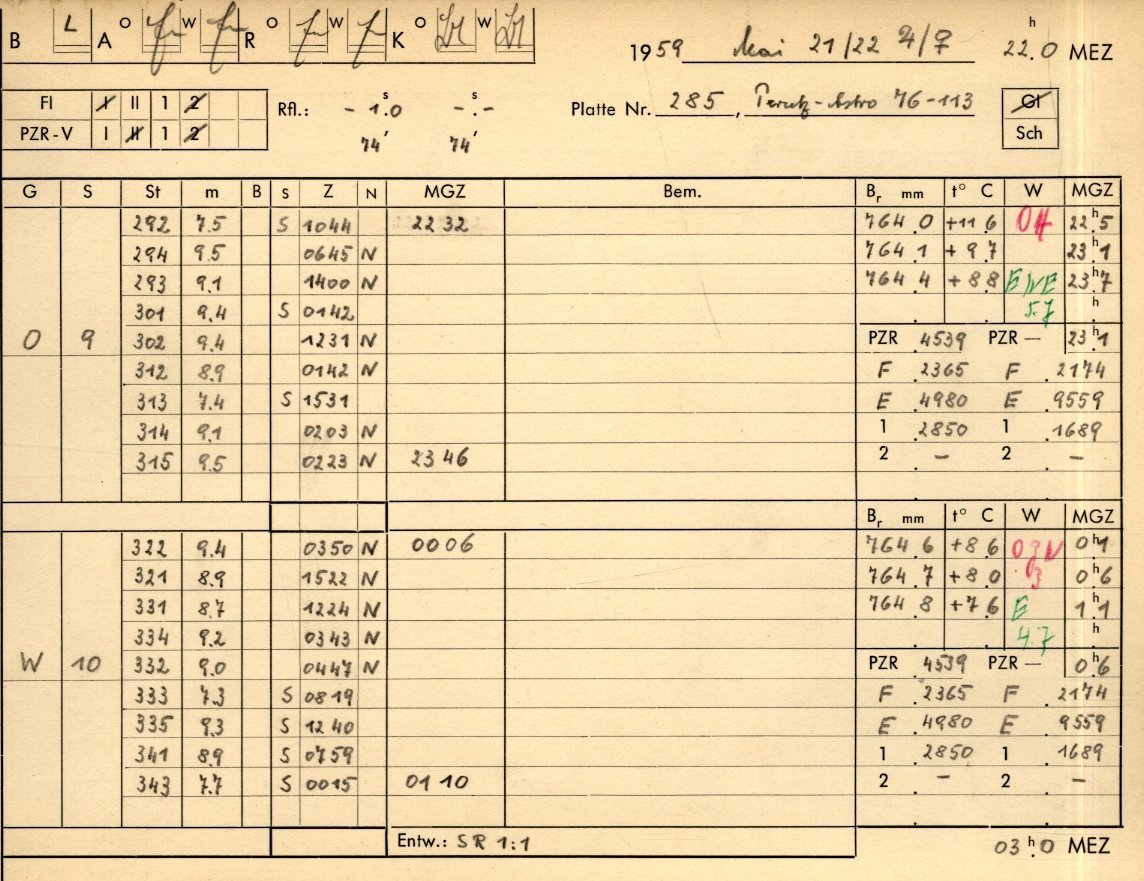 B L A O W R O W K O W
1959 Mai 21/22 ♃/♀ 22h.0 MEZ
FI I II 1 2 Rfl.: - 1s.0 - s.- Platte Nr. 285, Perutz-Astro 76-113 GI
PZR-V I II 1 2 74' 74' Sch
G S St m B S Z N MGZ Bem. Br mm t° C W MGZ
292 7.5 S 1044 22 32 764.0 +11.6 22h.5
294 9.5 0645 N 764.1 +9.7 23h.1
293 9.1 1400 N 764.4 +8.8 ENE 23h.7
301 9.4 S 0142 5.7 h
O 9 302 9.4 1231 N PZR .4539 PZR — 23h.1
312 8.9 0142 N F .2365 F .2174
313 7.4 S 1531 E .4980 E .9559
314 9.1 0203 N 1 .2850 1 .1689
315 9.5 0223 N 23 46 2 - 2 -
Br mm t° C W MGZ
322 9.4 0350 N 00 06 764.6 +8.6 0h.1
321 8.9 1522 N 764.7 +8.0 3 0h.6
331 8.7 1224 N 764.8 +7.6 E 1h.1
334 9.2 0343 N 4.7 h
W 10 332 9.0 0447 N PZR .4539 PZR — 0h.6
333 7.3 S 0819 F .2365 F .2174
335 9.3 S 1240 E .4980 E .9559
341 8.9 S 0759 1 .2850 1 .1689
343 7.7 S 0015 01 10 2 - 2 -
Entw.: SR 1:1 03h.0 MEZ